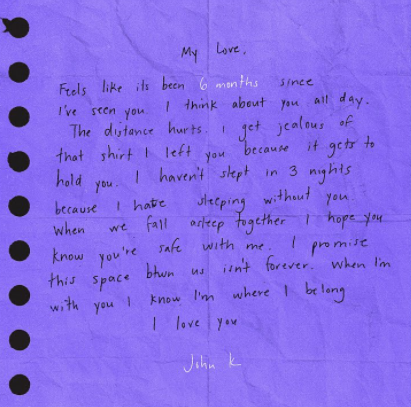 My Love,
Feels like its been 6 months since
I've seen you. I think about you all day.
The distance hurts. I get jealous of
that shirt I left you because it gets to
hold you. I haven't slept in 3 nights
because I hate sleeping without you.
When we fall asleep together I hope you
know you're safe with me. I promise
this space btwn us isn't forever. When I'm
with you I know I'm where I belong
I love you
John K